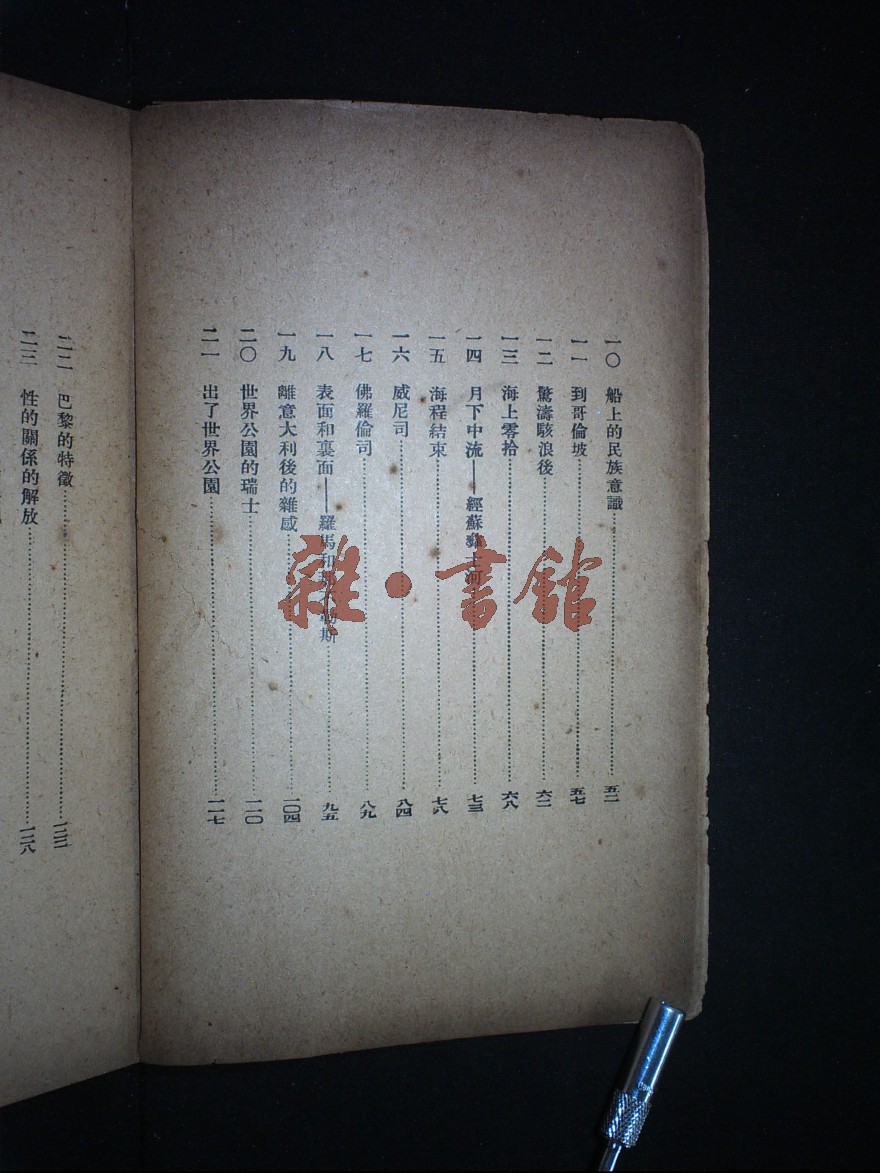 一〇 船上的民族意識……五二
一一 到哥倫坡……五七
一二 驚濤駭浪後……六二
一三 海上零拾……六八
一四 月下中流——經蘇彝士河……七三
一五 海程結束……七八
一六 威尼司……八四
一七 佛羅倫司……八九
一八 表面和裏面——羅馬和 斯……九五
一九 離意大利後的雜感……一〇四
二〇 世界公園的瑞士……一一〇
二一 出了世界公園……一一七
二二 巴黎的特徵……一二二
二三 性的關係的解放……一二八
雜·書館